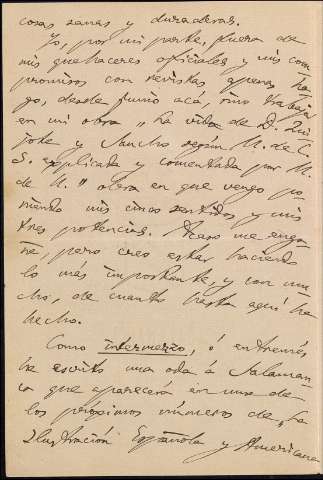 cosas sanas y duraderas.
Yo, por mi parte, fuera de
mis quehaceres oficiales y mis com
promisos con revistas, apenas ha
go, desde junio acá, sino trabajar
en mi obra "La vida de D. Qui
jote y Sancho según M. de C.
S. explicada y comentada por M.
de U." obra en que vengo po
niendo mis cinco sentidos y mis
tres potencias. Acaso me enga
ñe, pero creo estar haciendo
lo mas importante, y con mu
cho, de cuanto hasta aquí he
hecho.
Como intermezzo, ó entremés
he escrito una oda á Salaman
ca que aparecerá en uno de
los próximos números de La
Ilustración Española y Americana